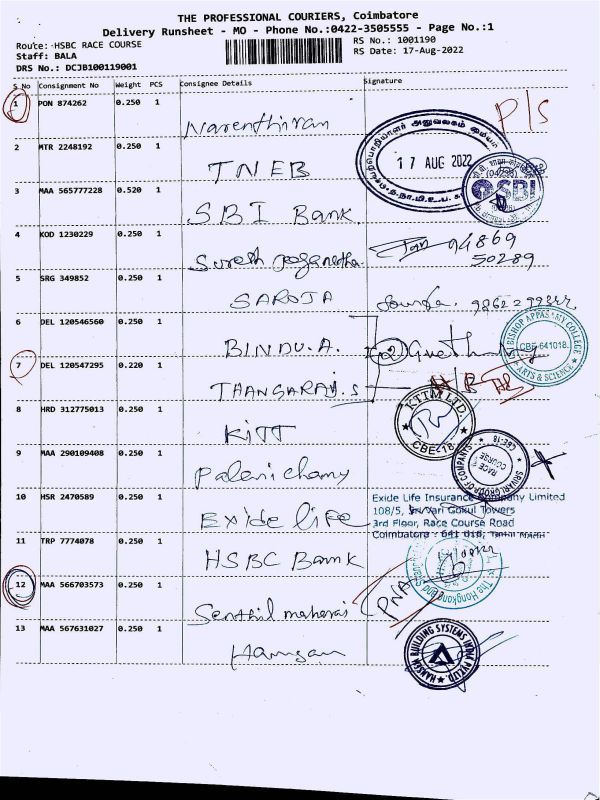 THE PROFESSIONAL COURIERS, Coimbatore
Delivery Runsheet - MO - Phone No.:0422-3505555 - Page No.:1
Route: HSBC RACE COURSE
RS No.: 1001190
Staff: BALA
RS Date: 17-Aug-2022
DRS No.: DCJB100119001
S No Consignment No Weight PCS Consignee Details Signature
1 PON 874262 0.250 1 Narenthiran P/S
2 MTR 2248192 0.250 1 TNEB 17 AUG 2022
3 MAA 565777228 0.520 1 SBI Bank SBI
4 KOD 1230229 0.250 1 Suresh 94869 50289
5 SRG 349852 0.250 1 SAROJA
6 DEL 120546560 0.250 1 BINDU.A.
BISHOP APPASAMY COLLEGE
CBE-641018.
ARTS & SCIENCE
7 DEL 120547295 0.220 1 THANGARAJ.S
8 HRD 312775013 0.250 1 KITT
KTTM LTD
CBE-18
9 MAA 290109408 0.250 1 Palanichamy
SRIVARI GROUP OF COMPANYS
RACE COURSE
CBE-18
10 HSR 2470589 0.250 1 Exide life
Exide Life Insurance Company Limited
108/5, Srivari Gokul Towers
3rd Floor, Race Course Road
Coimbatore - 641 018, Tamil Nadu
11 TRP 7774078 0.250 1 HSBC Bank
The Hongkong and
12 MAA 566703573 0.250 1 Senthil PNA
13 MAA 567631027 0.250 1 Hamsan
HAMSAN BUILDING SYSTEMS INDIA PVT LTD